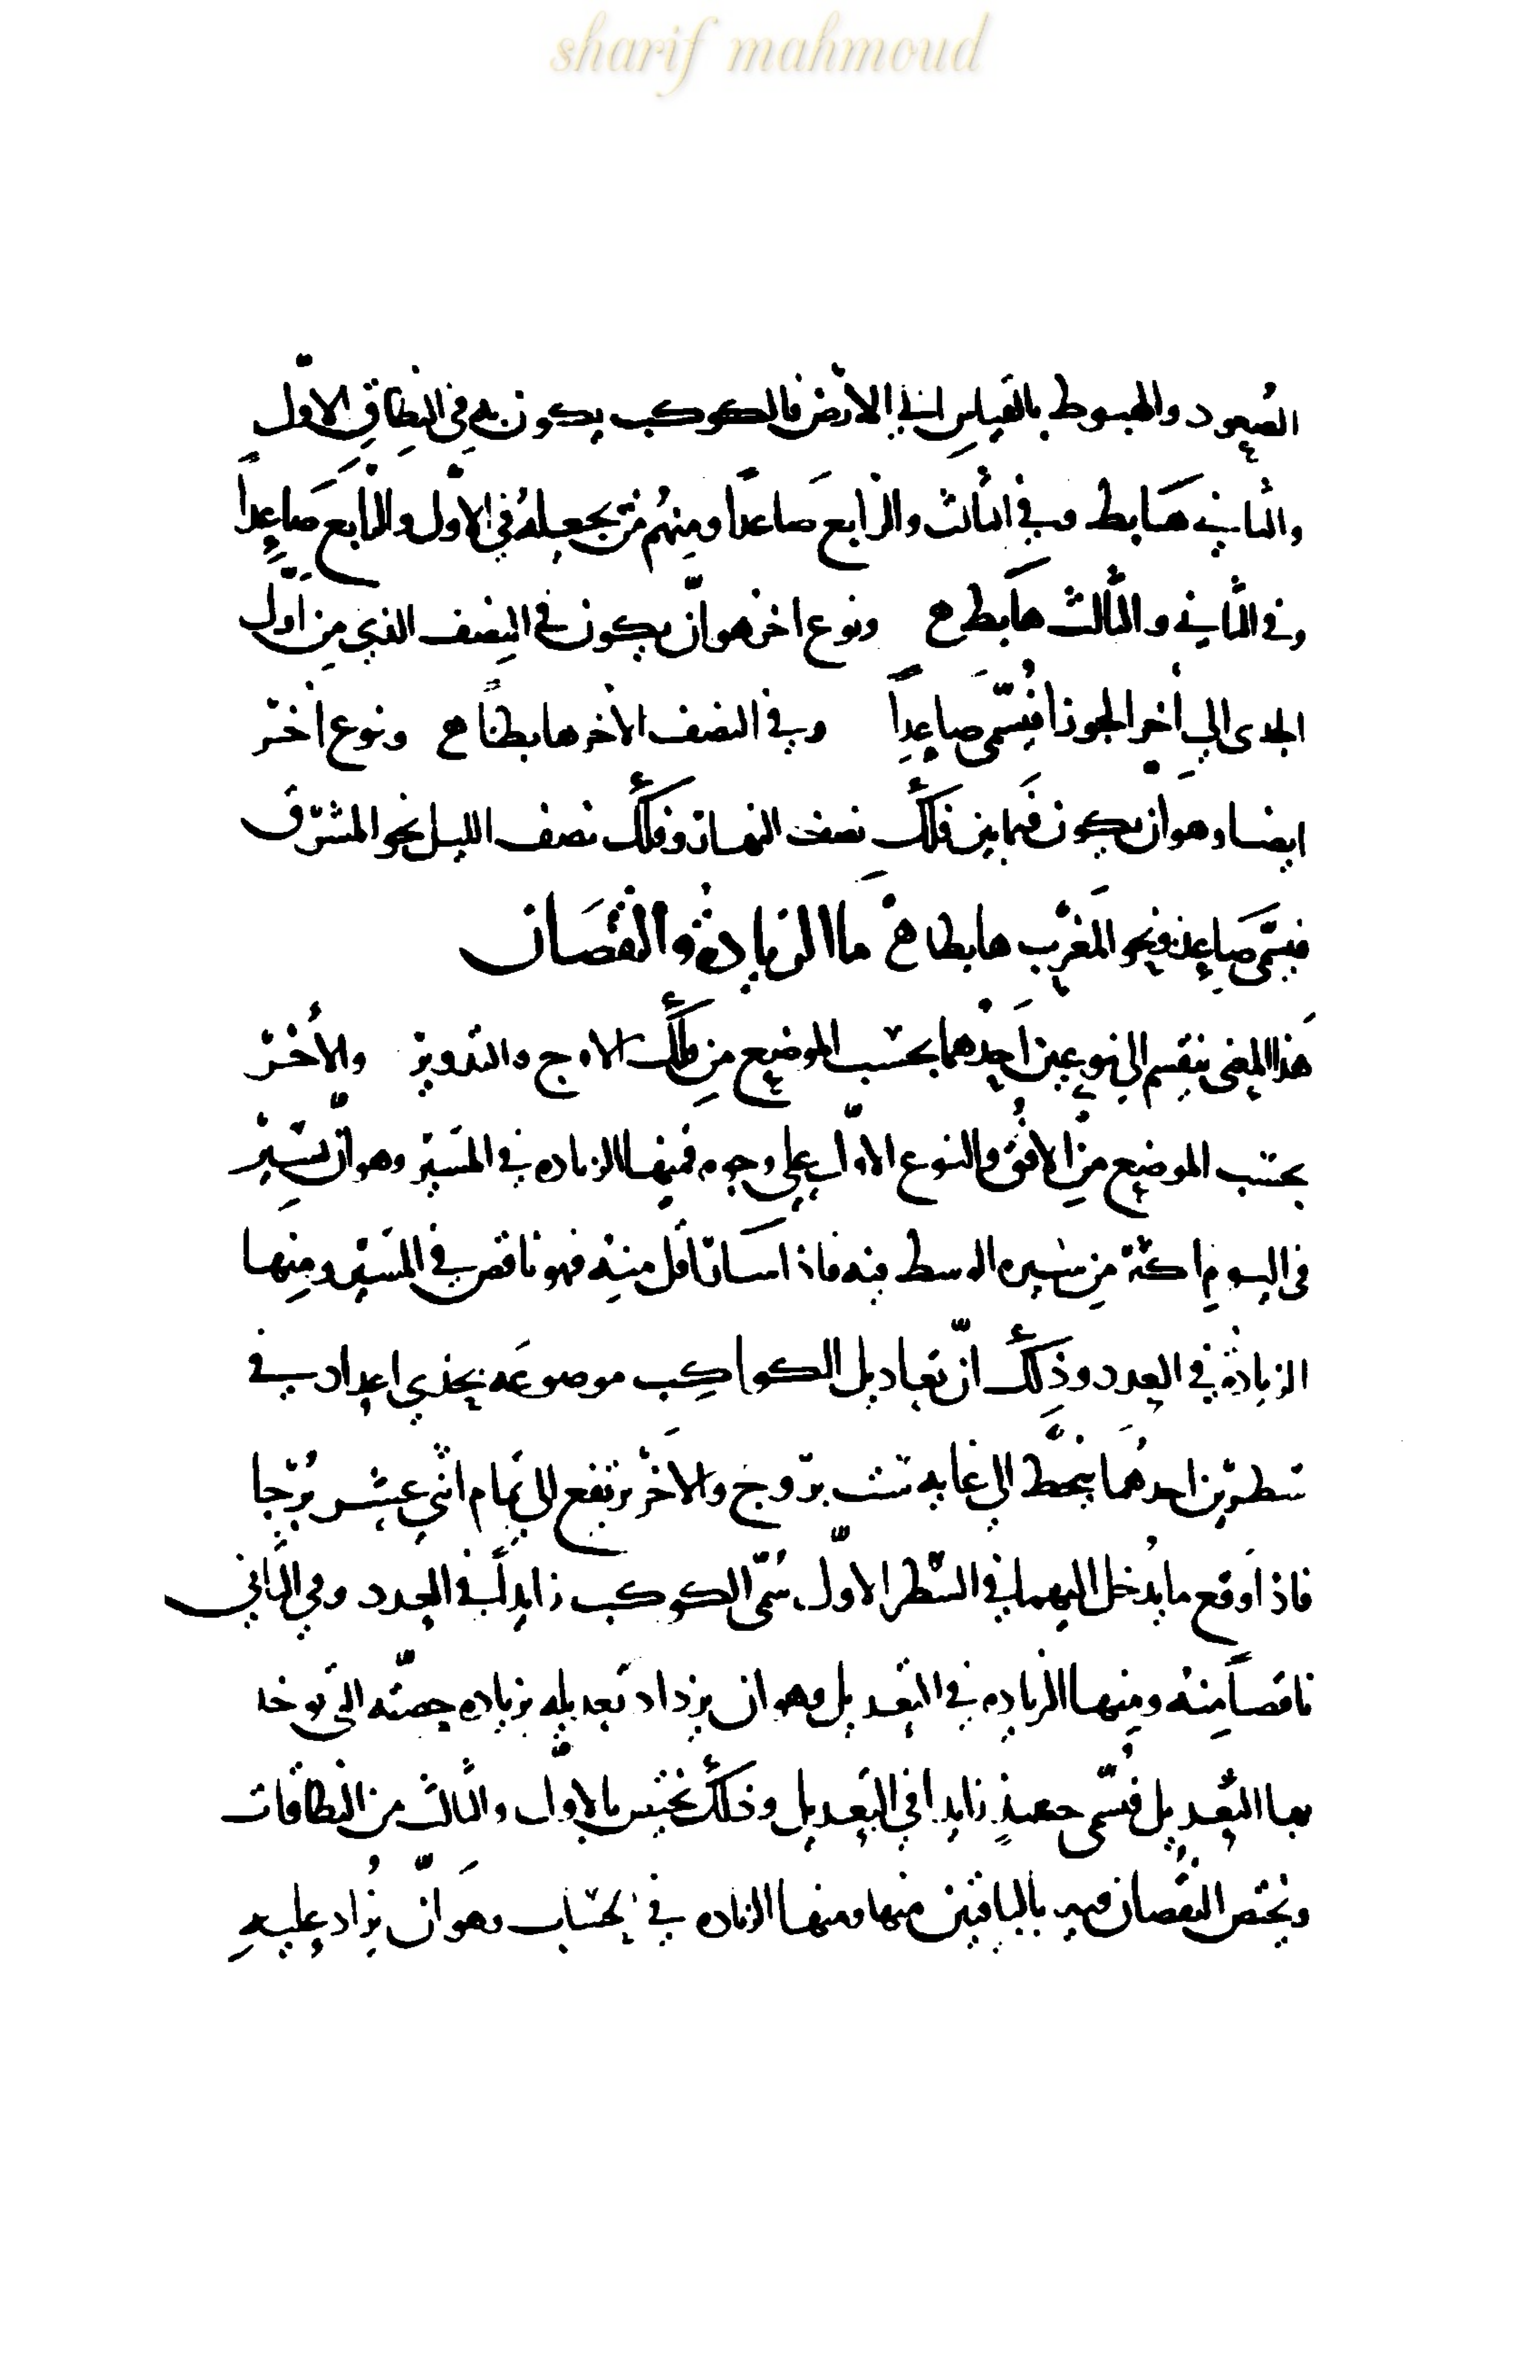 sharif mahmoud
الصعود والهبوط بالقياس الى الارض فالكوكب يكون به في النطاق الاوّل
والثاني هَابط وفي الثالث والرابع صَاعدًا ومنهُم من يجعلهُ في الاوّل والرابع صَاعِداً
وفي الثاني والثالث هابط ح ونوع اخر هو انّ يكون في النِصف الذي مِن اوّل
الجدى الي أخر الجوزا فيُسمّى صَاعِداً وفي النصف الأخر هابطاً ح ونوع أخر
ايضا وهو ان يكون فيما بين فلك نصف النهار وفلك نصف الليل نحو المشرق
فيسمّى صَاعِد ونحو المغرب هابطا ح ما الزيادة والنقصَان
هَذا المعنى ينقسم الى نوعين أحدهما بحسب الموضع من فلك الاوج والتدوير والأخر
بحسب الموضع مِن الافق والنوع الاوّل على وجوه فمنها الزياده في المسَير وهو انّ يسير
في اليوم اكثر مِن سَيره الوسط فيه فاذا سَار اقل منه فهو ناقص في المسَير ومِنها
الزيادة في العدد وذلك انّ تعاديل الكواكب موضوعَه بحذي اعداد في
سَطرين احدهُمَا ينحطّ الى غايه ستّ بروج والأخر يرتفع الى تمام اثنى عشر بُرجا
فاذا وقع ما يُدخل اليهما في السّطر الاوّل سُمّى الكوكب زايداً في العدد وفي الثاني
ناقصاً منهُ ومِنها الزياده في التعديل وهو ان يزداد تعديله بزياده حصّته التى توخذ
بها التعديل فيُسمّى حينئذٍ زايدا في التعديل وذلك يختص بالاوّل والثالث من النطاقات
ويختص النقصان فيه بالباقيين منها ومنها الزياده في الحسَاب وهوَ انّ يُزاد عليهِ